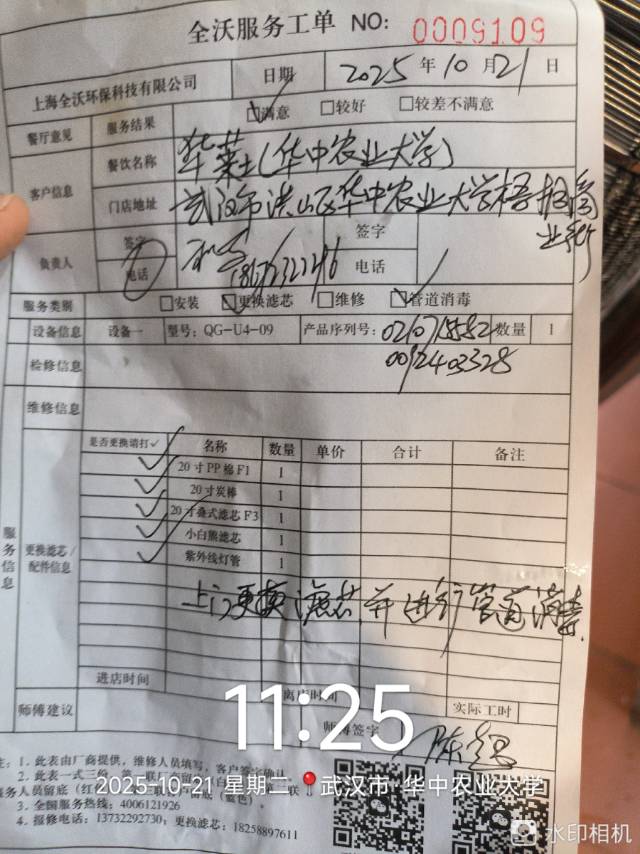 全沃服务工单 NO: 0009109
上海全沃环保科技有限公司 日期 2025年10月21日
餐厅意见 服务结果 ☑满意 □较好 □较差不满意
客户信息 餐饮名称 华莱士(华中农业大学)
门店地址 武汉市洪山区华中农业大学梧桐商业街
负责人 签字 签字
电话 电话
服务类别 □安装 ☑更换滤芯 □维修 ☑管道消毒
设备信息 设备一 型号: QG-U4-09 产品序列号: 数量 1
检修信息 0092403328
维修信息
服务信息 更换滤芯/配件信息
是否更换请打✓ 名称 数量 单价 合计 备注
✓ 20寸PP棉F1 1
✓ 20寸炭棒 1
✓ 20寸叠式滤芯F3 1
✓ 小白熊滤芯 1
✓ 紫外线灯管 1
上门更换滤芯并进行管道消毒
进店时间 离店时间
师傅建议 实际工时
师傅签字
11:25
2025-10-21 星期二 武汉市·华中农业大学
1. 此表由厂商提供，维修人员填写，客户签字确认
2. 此表一式三份
3. 全国服务热线: 4006121926
4. 报修电话: 13732292730; 更换滤芯: 18258897611
水印相机